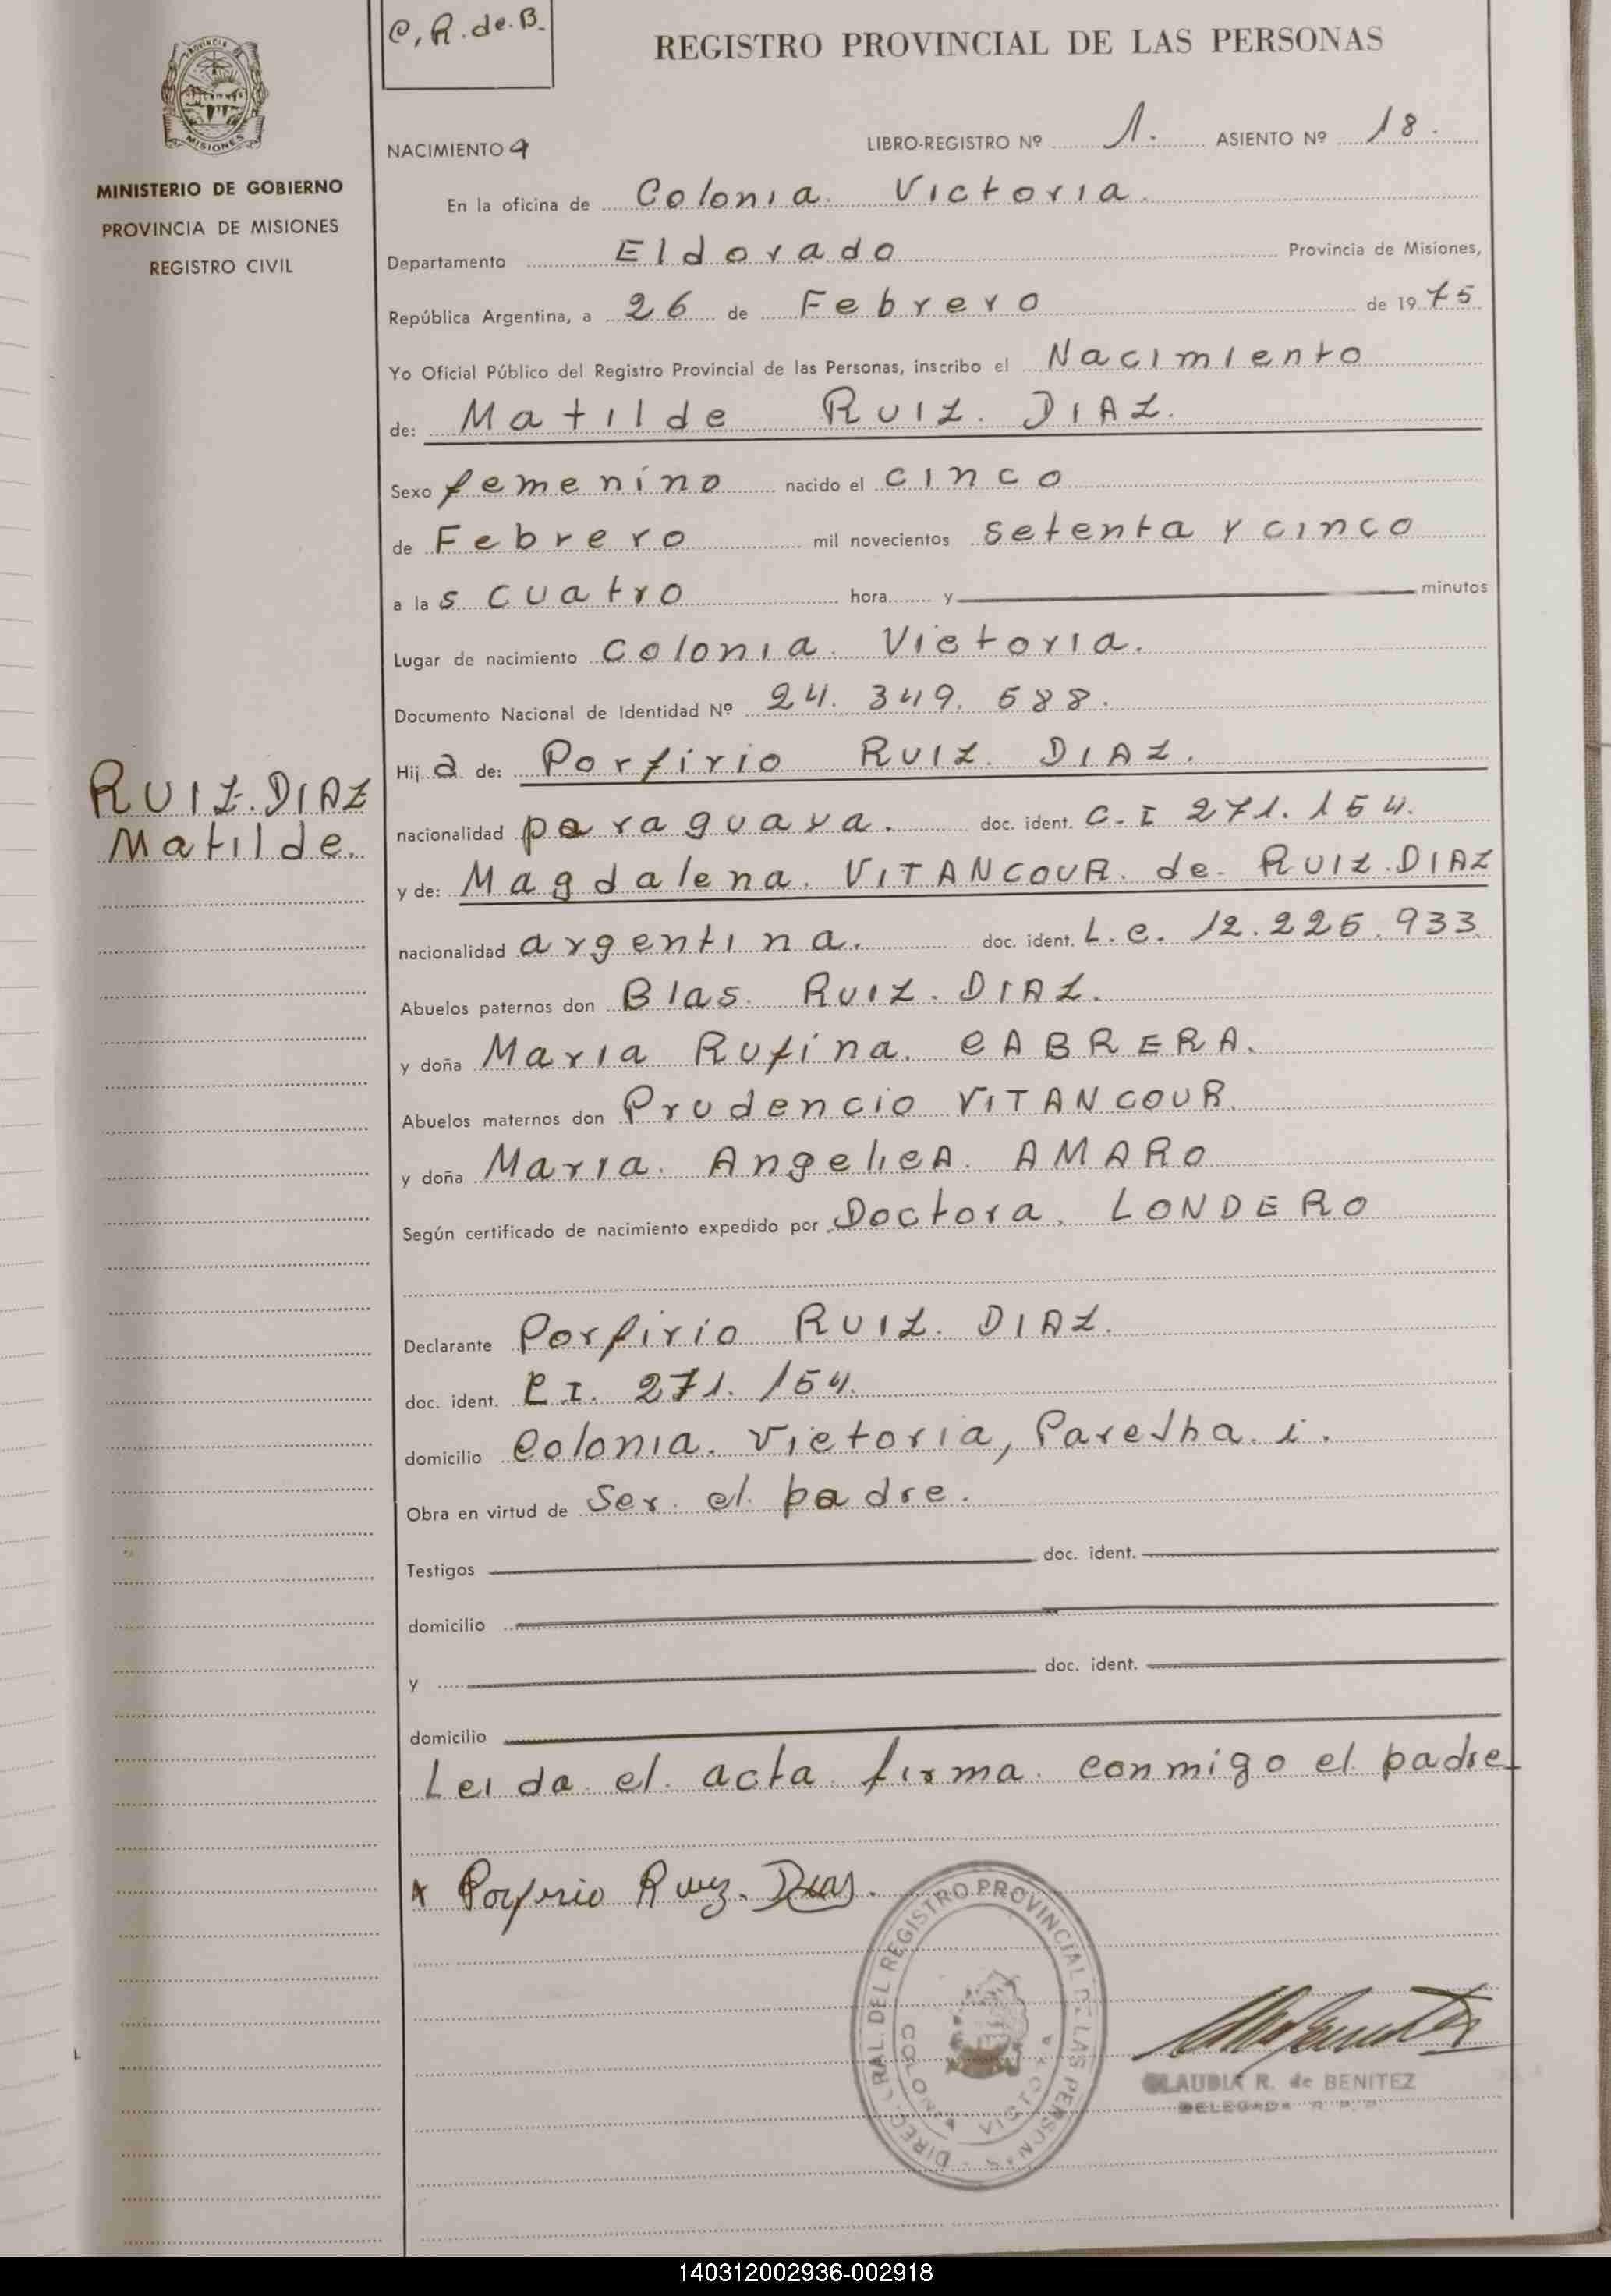 C, R. de. B.
REGISTRO PROVINCIAL DE LAS PERSONAS
MISIONES
MINISTERIO DE GOBIERNO
PROVINCIA DE MISIONES
REGISTRO CIVIL
NACIMIENTO 9
LIBRO-REGISTRO Nº 1. ASIENTO Nº 18.
En la oficina de Colonia. Victoria.
Departamento Eldorado Provincia de Misiones,
República Argentina, a 26 de Febrero de 1975
Yo Oficial Público del Registro Provincial de las Personas, inscribo el Nacimiento
de: Matilde RUIZ. DIAZ.
Sexo femenino nacido el cinco
de Febrero mil novecientos setenta y cinco
a las cuatro hora y minutos
Lugar de nacimiento Colonia. Victoria.
Documento Nacional de Identidad Nº 24. 349. 588.
RUIZ. DIAZ
Matilde.
Hija de: Porfirio RUIZ. DIAZ.
nacionalidad paraguaya. doc. ident. C-I 271. 154.
y de: Magdalena. VITANCOUR. de. RUIZ. DIAZ
nacionalidad argentina. doc. ident. L.C. 12.225.933
Abuelos paternos don Blas. RUIZ. DIAZ.
y doña Maria Rufina. CABRERA.
Abuelos maternos don Prudencio VITANCOUR.
y doña Maria. AngelicA. AMARO
Según certificado de nacimiento expedido por Doctora. LONDERO
Declarante Porfirio RUIZ. DIAZ.
doc. ident. C I. 271. 154.
domicilio Colonia. Victoria, Paresha. i.
Obra en virtud de Ser. el. padre.
Testigos doc. ident.
domicilio
y doc. ident.
domicilio
Leida. el. acta. firma. conmigo el padre
x Porfirio Ruiz. Dias.
DIREC. GRAL. DEL REGISTRO PROVINCIAL DE LAS PERSONAS
COLONIA VICTORIA
CLAUDIA R. de BENITEZ
DELEGADA R. P. P.
140312002936-002918